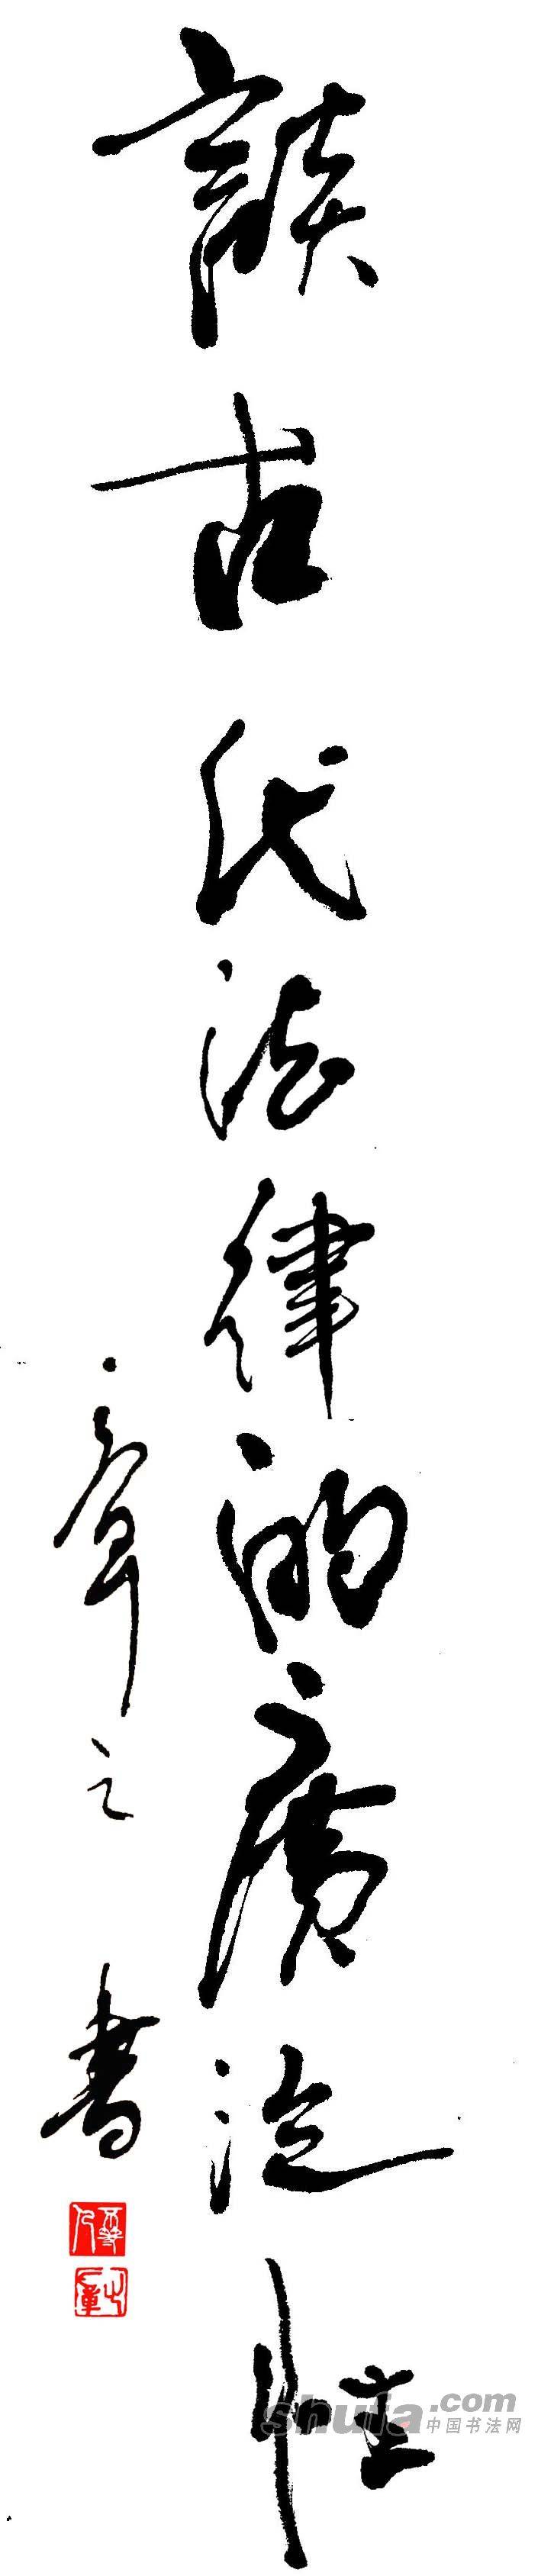 談古代法律的廣泛性
章之書
shufa.com
中国书法网